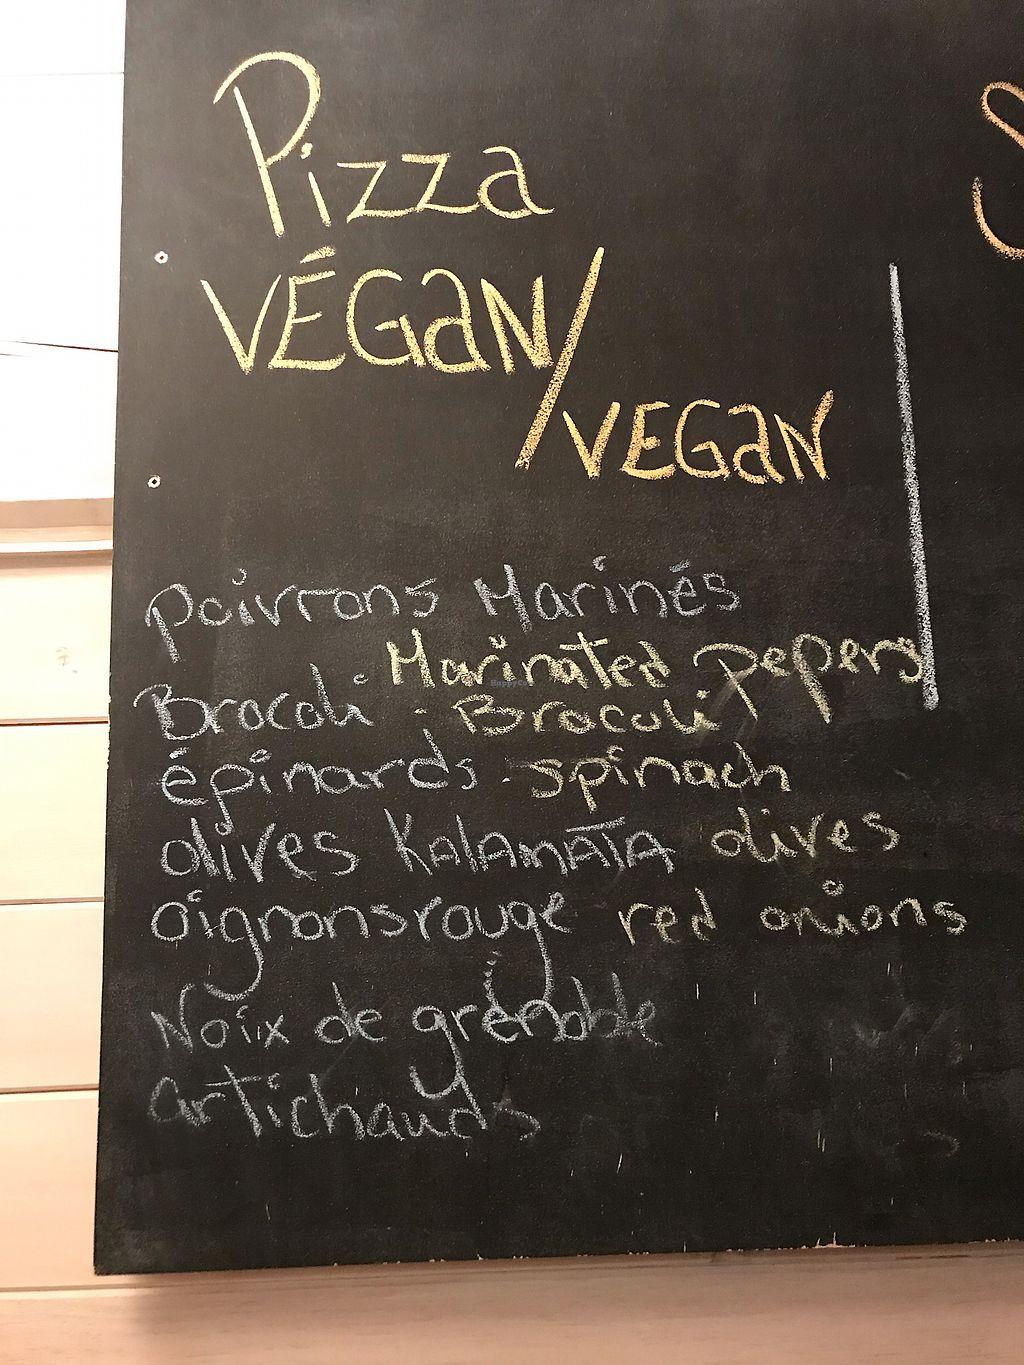 Pizza
VÉGAN/
VEGAN
Poivrons Marinés
Marinated pepers
Brocoli - Brocoli
épinards - spinach
olives KALAMATA olives
oignons rouge red onions
Noix de grenoble
artichauds